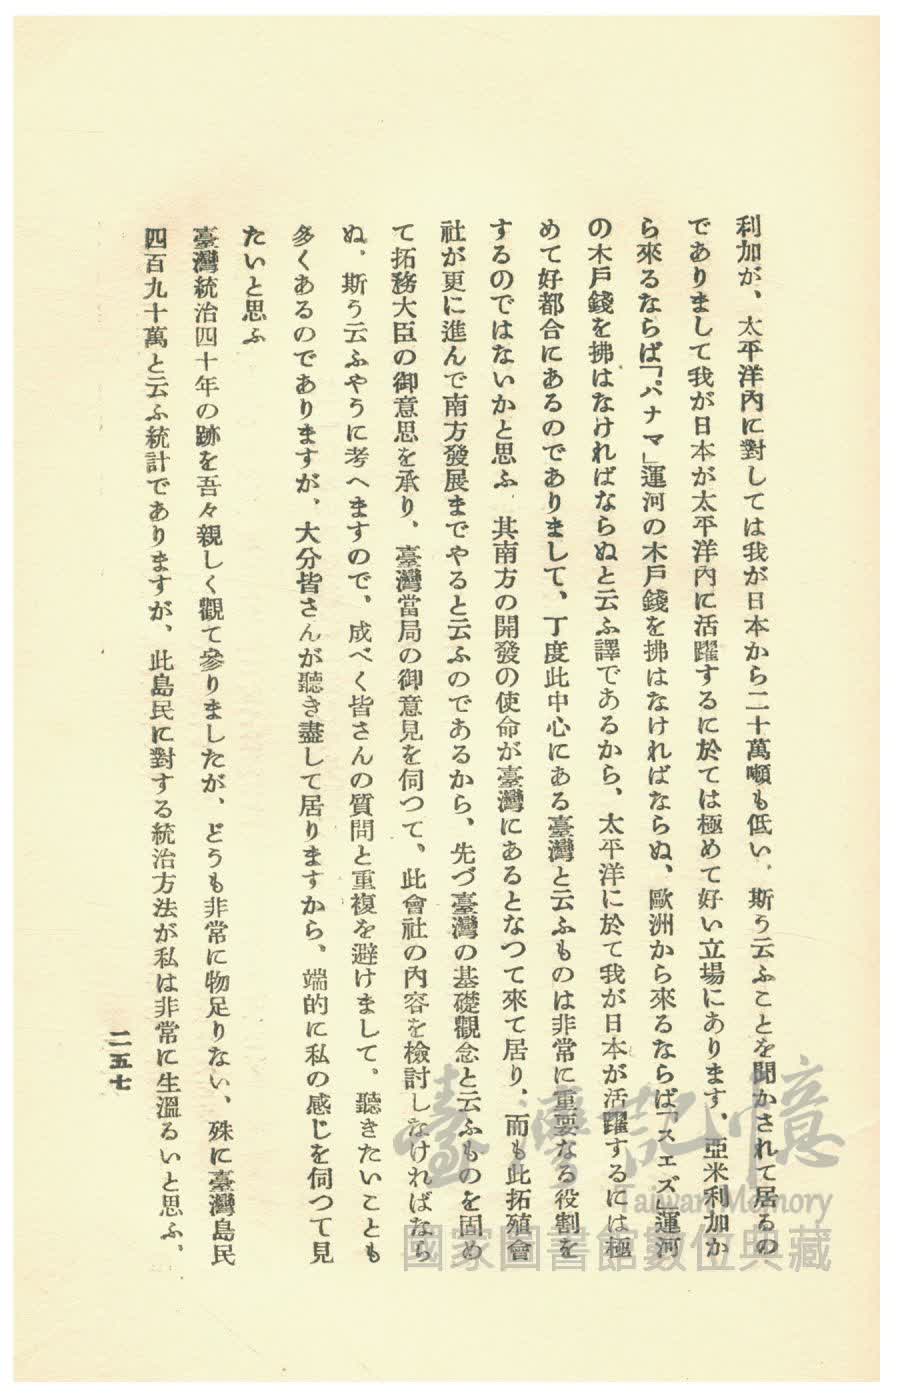 利加が、太平洋內に對しては我が日本から二十萬噸も低い、斯う云ふことを聞かされて居るの
でありまして我が日本が太平洋內に活躍するに於ては極めて好い立場にあります、亞米利加か
ら來るならば「パナマ」運河の木戶錢を拂はなければならぬ、歐洲から來るならば「スエズ」運河
の木戶錢を拂はなければならぬと云ふ譯であるから、太平洋に於て我が日本が活躍するには極
めて好都合にあるのでありまして、丁度此中心にある臺灣と云ふものは非常に重要なる役割を
するのではないかと思ふ、其南方の開發の使命が臺灣にあるとなつて來て居り、而も此拓殖會
社が更に進んで南方發展までやると云ふのであるから、先づ臺灣の基礎觀念と云ふものを固め
て拓務大臣の御意思を承り、臺灣當局の御意見を伺つて、此會社の內容を檢討しなければなら
ぬ、斯う云ふやうに考へますので、成べく皆さんの質問と重複を避けまして、聽きたいことも
多くあるのでありますが、大分皆さんが聽き盡して居りますから、端的に私の感じを伺つて見
たいと思ふ
臺灣統治四十年の跡を吾々親しく觀て參りましたが、どうも非常に物足りない、殊に臺灣島民
四百九十萬と云ふ統計でありますが、此島民に對する統治方法が私は非常に生溫るいと思ふ、
二五七
臺灣記憶
Taiwan Memory
國家圖書館數位典藏